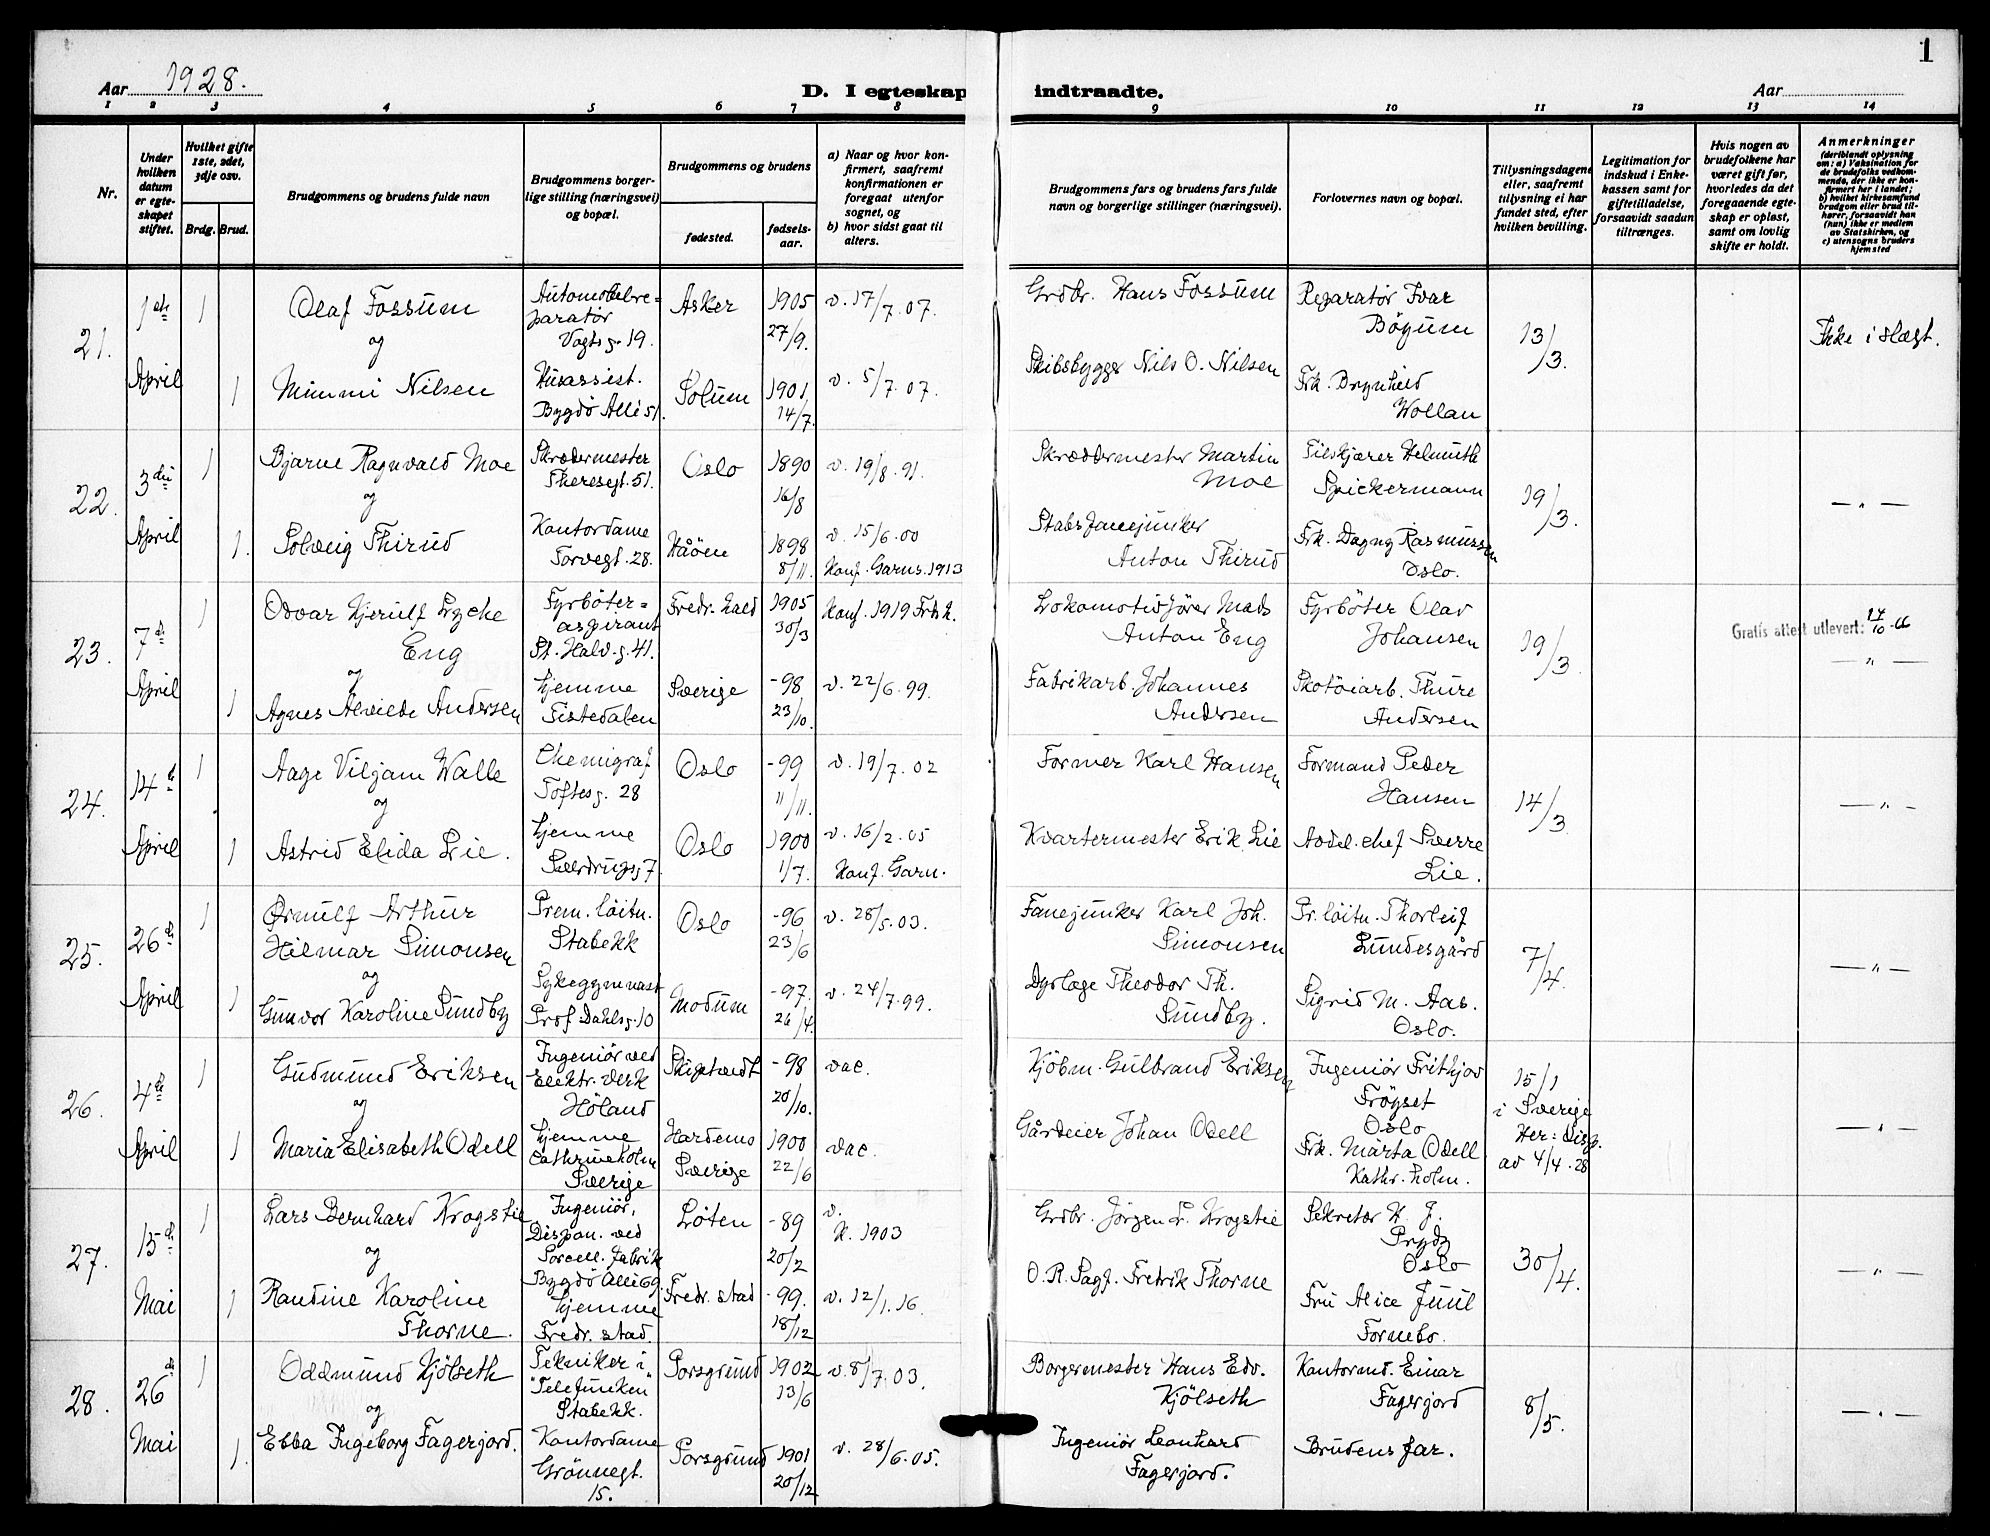 1
Aar 1928.
D. I egteskap indtraadte.
Aar
1 2 3 4 5 6 7 8 9 10 11 12 13 14
Nr.
Under
hvilken
datum
er egte-
skapet
stiftet.
Hvilket gifte
1ste, 2det,
3dje osv.
Brdg. Brud.
Brudgommens og brudens fulde navn
Brudgommens borger-
lige stilling (næringsvei)
og bopæl.
Brudgommens og brudens
fødested.
fødsels-
aar.
a) Naar og hvor kon-
firmert, saafremt
konfirmationen er
foregaat utenfor
sognet, og
b) hvor sidst gaat til
alters.
Brudgommens fars og brudens fars fulde
navn og borgerlige stillinger (næringsvei).
Forlovernes navn og bopæl.
Tillysningsdagene
eller, saafremt
tillysning ei har
fundet sted, efter
hvilken bevilling.
Legitimation for
indskud i Enke-
kassen samt for
giftetilladelse,
forsaavidt saadan
tiltrænges.
Hvis nogen av
brudefolkene har
været gift før,
hvorledes da det
foregaaende egte-
skap er opløst,
samt om lovlig
skifte er holdt.
Anmerkninger
(deriblandt oplysning
om: a) Vaksination for
de brudefolks vedkom-
mende, der ikke er kon-
firmert her i landet;
b) hvilket kirkesamfund
brudgom eller brud til-
hører, forsaavidt han
(hun) ikke er medlem
av Statskirken, og
c) utensogns bruders
hjemsted
21.
1ste
April
1
Olaf Fossum
og
Automobilre=
paratør
Vogtsg. 19.
Asker
1905
27/9.
v. 17/7.07.
Grdbr. Hans Fossum
Reparatør Ivar
Bögum
13/3.
Ikke i slægt.
1
Mimmi Nilsen
Husassist.
Bygdö Alle 51.
Solum
1901
14/7.
v. 5/7.07.
Skibsbygger Nils O. Nilsen
Frk. Brynhild
Wollan
22.
3die
April
1
Bjarne Ragnvald Moe
og
Skrædermester
Theresegt. 51.
Oslo
1890
16/8
v. 19/8.91.
Skræddermester Martin
Moe
Filskjærer Helmuth
Spickermann
19/3.
— " —
1.
Solveig Thirud
Kontordame
Torvegt. 28.
Haöen
1898
8/11.
v. 15/6.00
Konf. Garns. 1913
Stabsfanejunker
Anton Thirud
Frk. Dagny Rasmussen
Oslo.
23.
7de
April
1
Odvar Kjerulf Lycke
Eng
og
Fyrböter=
aspirant
St. Halv. g. 41.
Fredr. hald
1905
30/3
Konf. 1919 Frh.
Lokomotivfører Mads
Anton Eng
Fyrböter Olav
Johansen
19/3
Gratis attest utlevert: 14/10-66
— " —
1
Agnes Alvilde Andersen
hjemme
Tistedalen
Sverige
-98
23/10.
v. 22/6.99.
Fabrikarb. Johannes
Andersen
Skotöiarb. Thure
Andersen
24.
14de
April
1
Aage Viljam Walle
og
Chemigraf
Toftesg. 28
Oslo
-99
11/11.
v. 19/7.02
Former Karl Hansen
Formand Peder
Hansen
14/3
— " —
1
Astrid Elida Lie.
hjemme
Sverdrupsg. 7
Oslo
1900
1/7.
v. 16/2.05
Konf. Garn.
Kvartermester Erik Lie
Avdel. chef Sverre
Lie.
25.
26de
April
1
Ørnulf Arthur
Hilmar Simonsen
og
Prem. löitn.
Stabekk
Oslo
-96
23/6
v. 28/5.03.
Fanejunker Karl Joh.
Simonsen
Pr. löitn. Thorleif
Lundesgård
7/4.
— " —
1
Gunvor Karoline Sundby
Sykegymnast
Prof Dahlsg. 10
Modum
-97.
26/4.
v. 24/7.99.
Dyrlæge Theodor Th.
Sundby.
Sigrid M. Aas.
Oslo.
26.
4de
April
1
Gudmund Eriksen
og
Ingeniør ved
Elektr. verk
Höland
Skiptvedt
-98
20/10.
vac.
Kjöbm. Gulbrand Eriksen
Ingeniør Frithjov
Fröyset
Oslo
15/1
i Sverige
Her: Disp.
av 4/4.28
— " —
1
Maria Elisabeth Odell
hjemme
Cathrineholm
Sverige
Hardemo
Sverige
1900
22/6
vac.
Gårdeier Johan Odell
Frk. Märta Odell
Kathr. holm.
27.
15de
Mai
1
Lars Bernhard Krogstie
og
Ingeniør,
Dispon. ved
Porcell. fabrik
Bygdö Alle 69.
Löten
-89
20/2
v.
K. 1903
Grdbr. Jörgen L. Krogstie
Sekretær H. J.
Prydz
Oslo
30/4.
— " —
1
Randine Karoline
Thorne.
hjemme
Fredr. stad.
Fredr. stad
-99.
18/12
v. 12/1.16.
O. R. Sagf. Fredrik Thorne
Fru Alice Juul
Fornebo.
28.
26de
Mai
1
Oddmund Kjölseth
og
Tekniker i
"Telefunken"
Stabekk.
Porsgrund
1902
13/6
v. 8/7.03.
Borgermester Hans Edv.
Kjölseth
Kontormd. Einar
Fagerjord
8/5.
— " —
1.
Ebba Ingeborg Fagerjord.
Kontordame
Grönnegt.
15.
Porsgrund
1901
20/12
v. 28/6.05.
Ingeniör Leonhard
Fagerjord.
Brudens far.